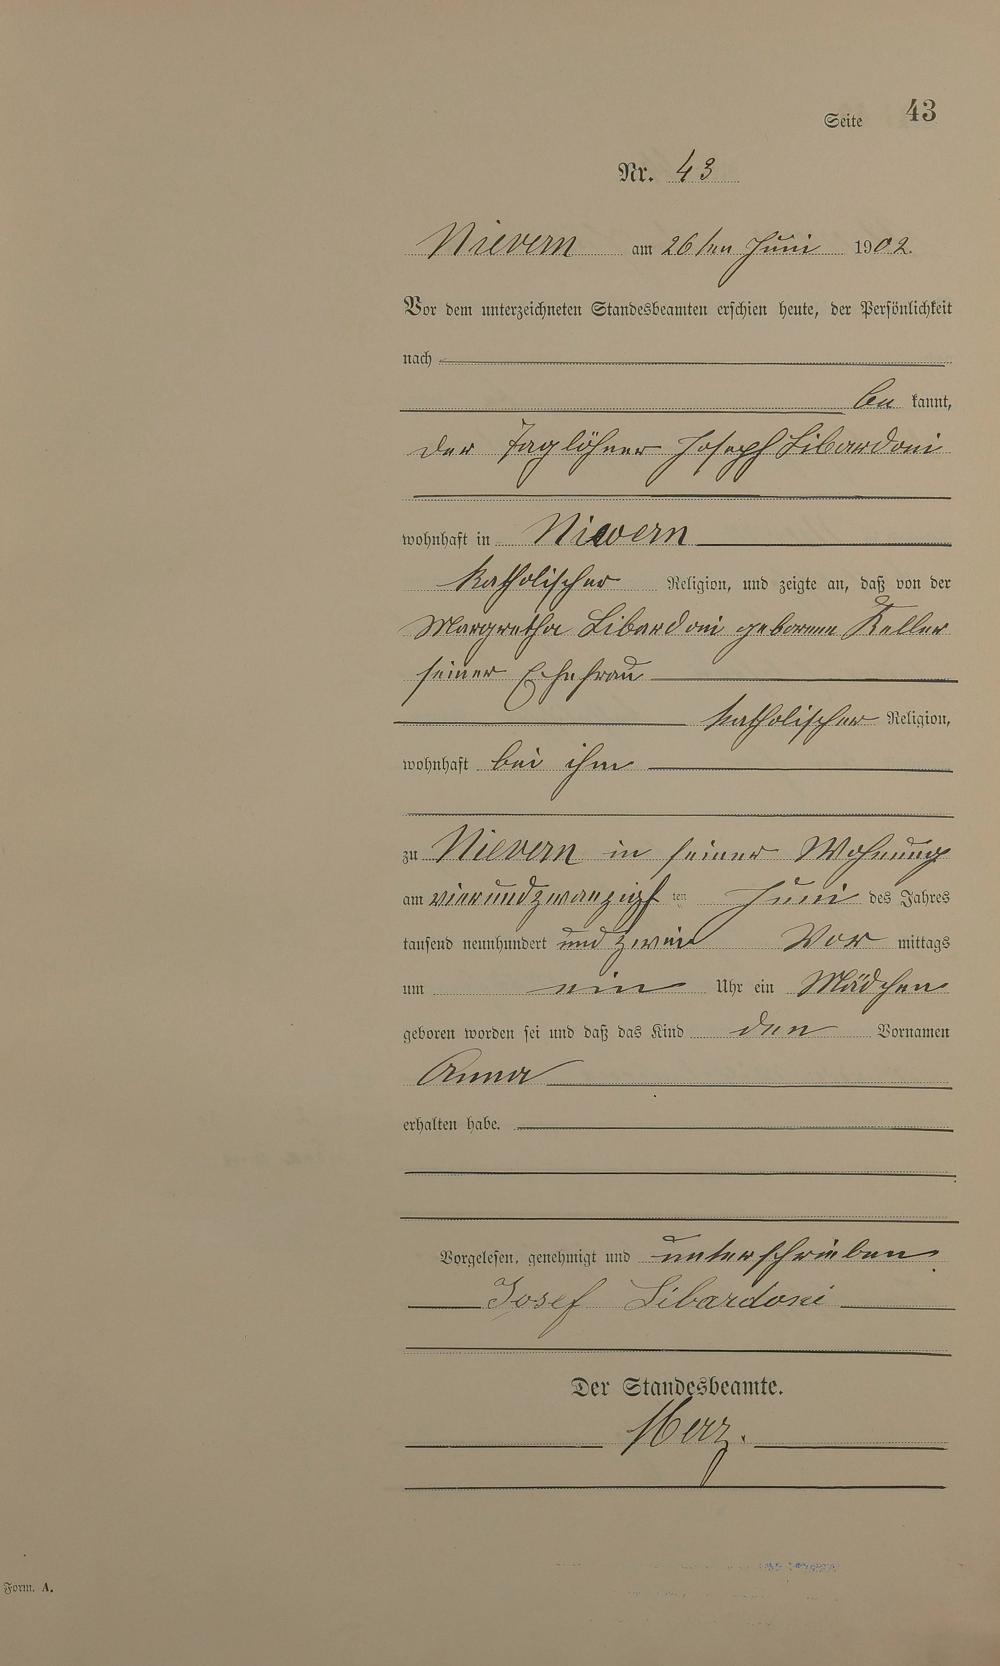 Seite 43
Nr. 43
Nievern am 26ten Juni 1902.
Vor dem unterzeichneten Standesbeamten erschien heute, der Persönlichkeit
nach
be kannt,
der Taglöhner Joseph Libardoni
wohnhaft in Nievern
katholischer Religion, und zeigte an, daß von der
Margretha Libardoni geborenen Keller
seiner Ehefrau
katholischer Religion,
wohnhaft bei ihm
zu Nievern in seiner Wohnung
am vierundzwanzigsten Juni des Jahres
tausend neunhundert und zwei Vor mittags
um ein Uhr ein Mädchen
geboren worden sei und daß das Kind den Vornamen
Anna
erhalten habe.
Vorgelesen, genehmigt und unterschrieben
Josef Libardoni
Der Standesbeamte.
Form. A.